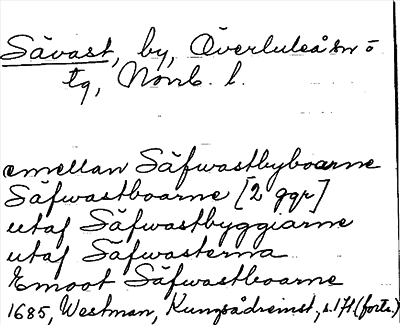 Sävast, by, Överluleå sn o
tg, Norrb. l.
emellan Säfwastbyboarne
Säfwastboarne [2 ggr]
utaf Säfwastbyggiarne
utaf Säfwasterna
Emoot Säfwastboarne
1685, Westman, Kungsådremst, s. 171 (forts.)